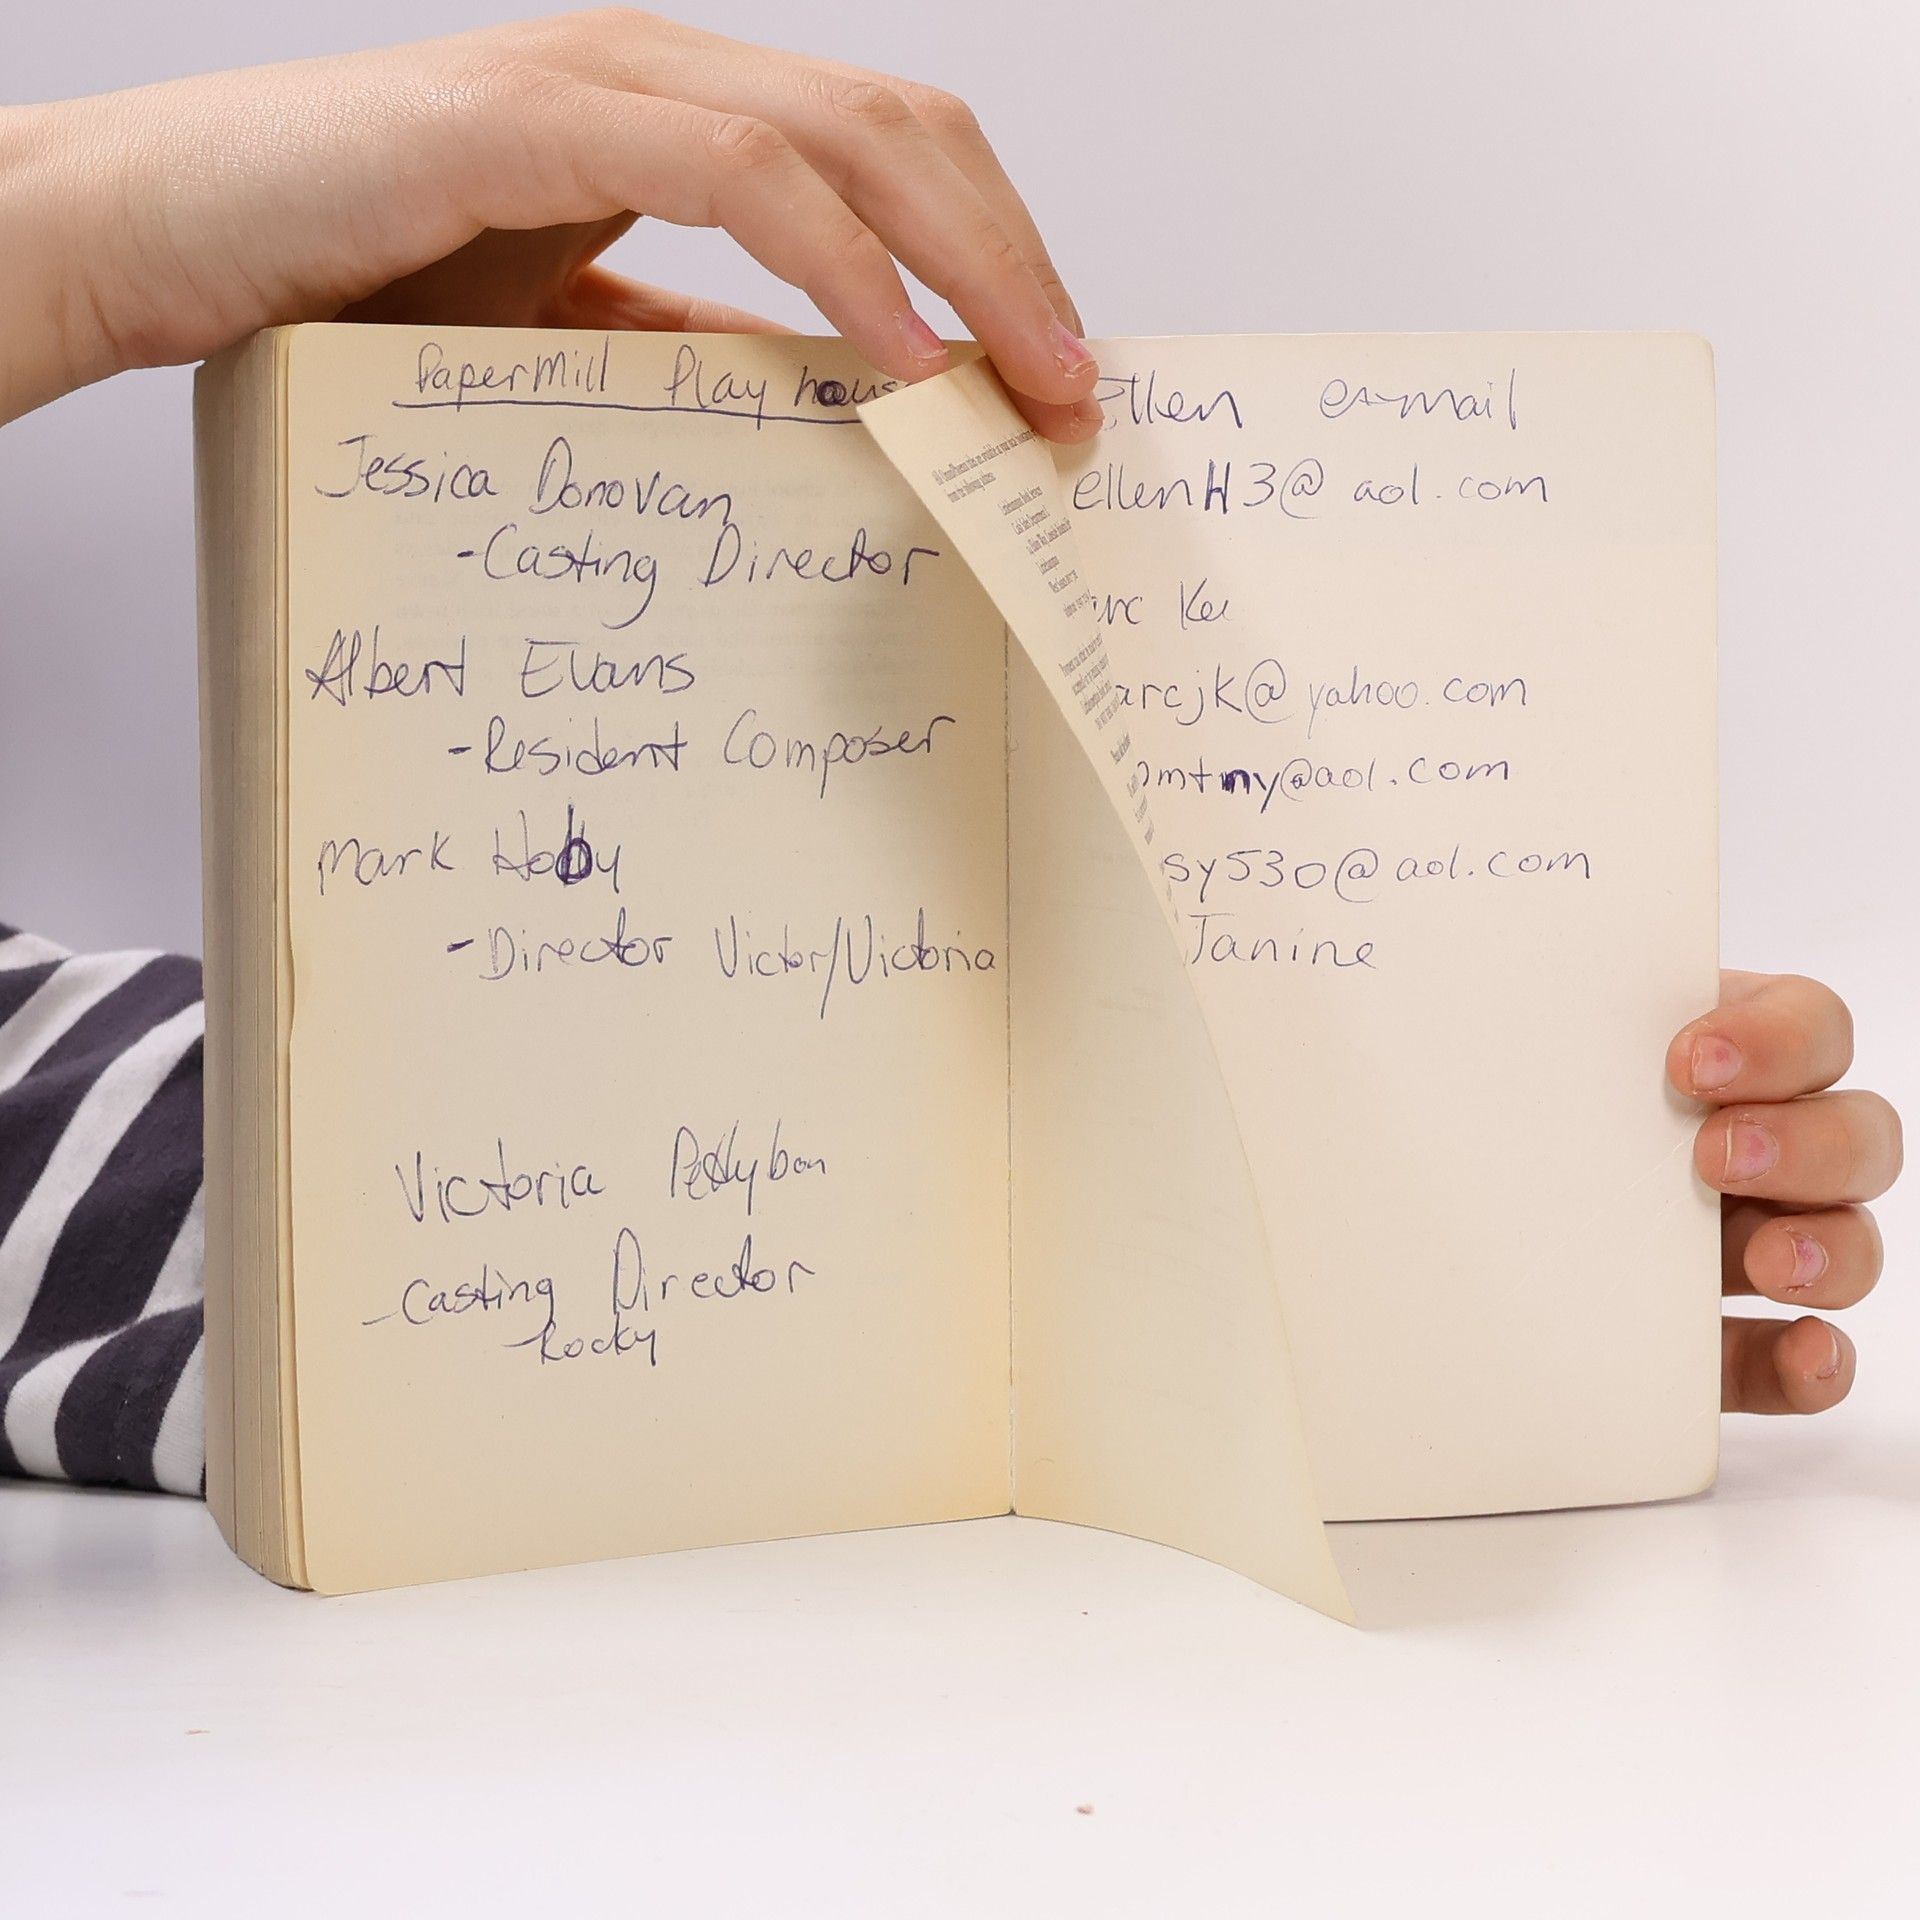 PaperMill Play hous
Jessica Donovan
-Casting Director
Albert Evans
-Resident Composer
Mark Hobby
-Director Victor/Victoria
Victoria
-Casting Director
-Rocky
Ellen e-mail
ellenH3@aol.com
arcjk@yahoo.com
omtny@aol.com
sy530@aol.com
Janine